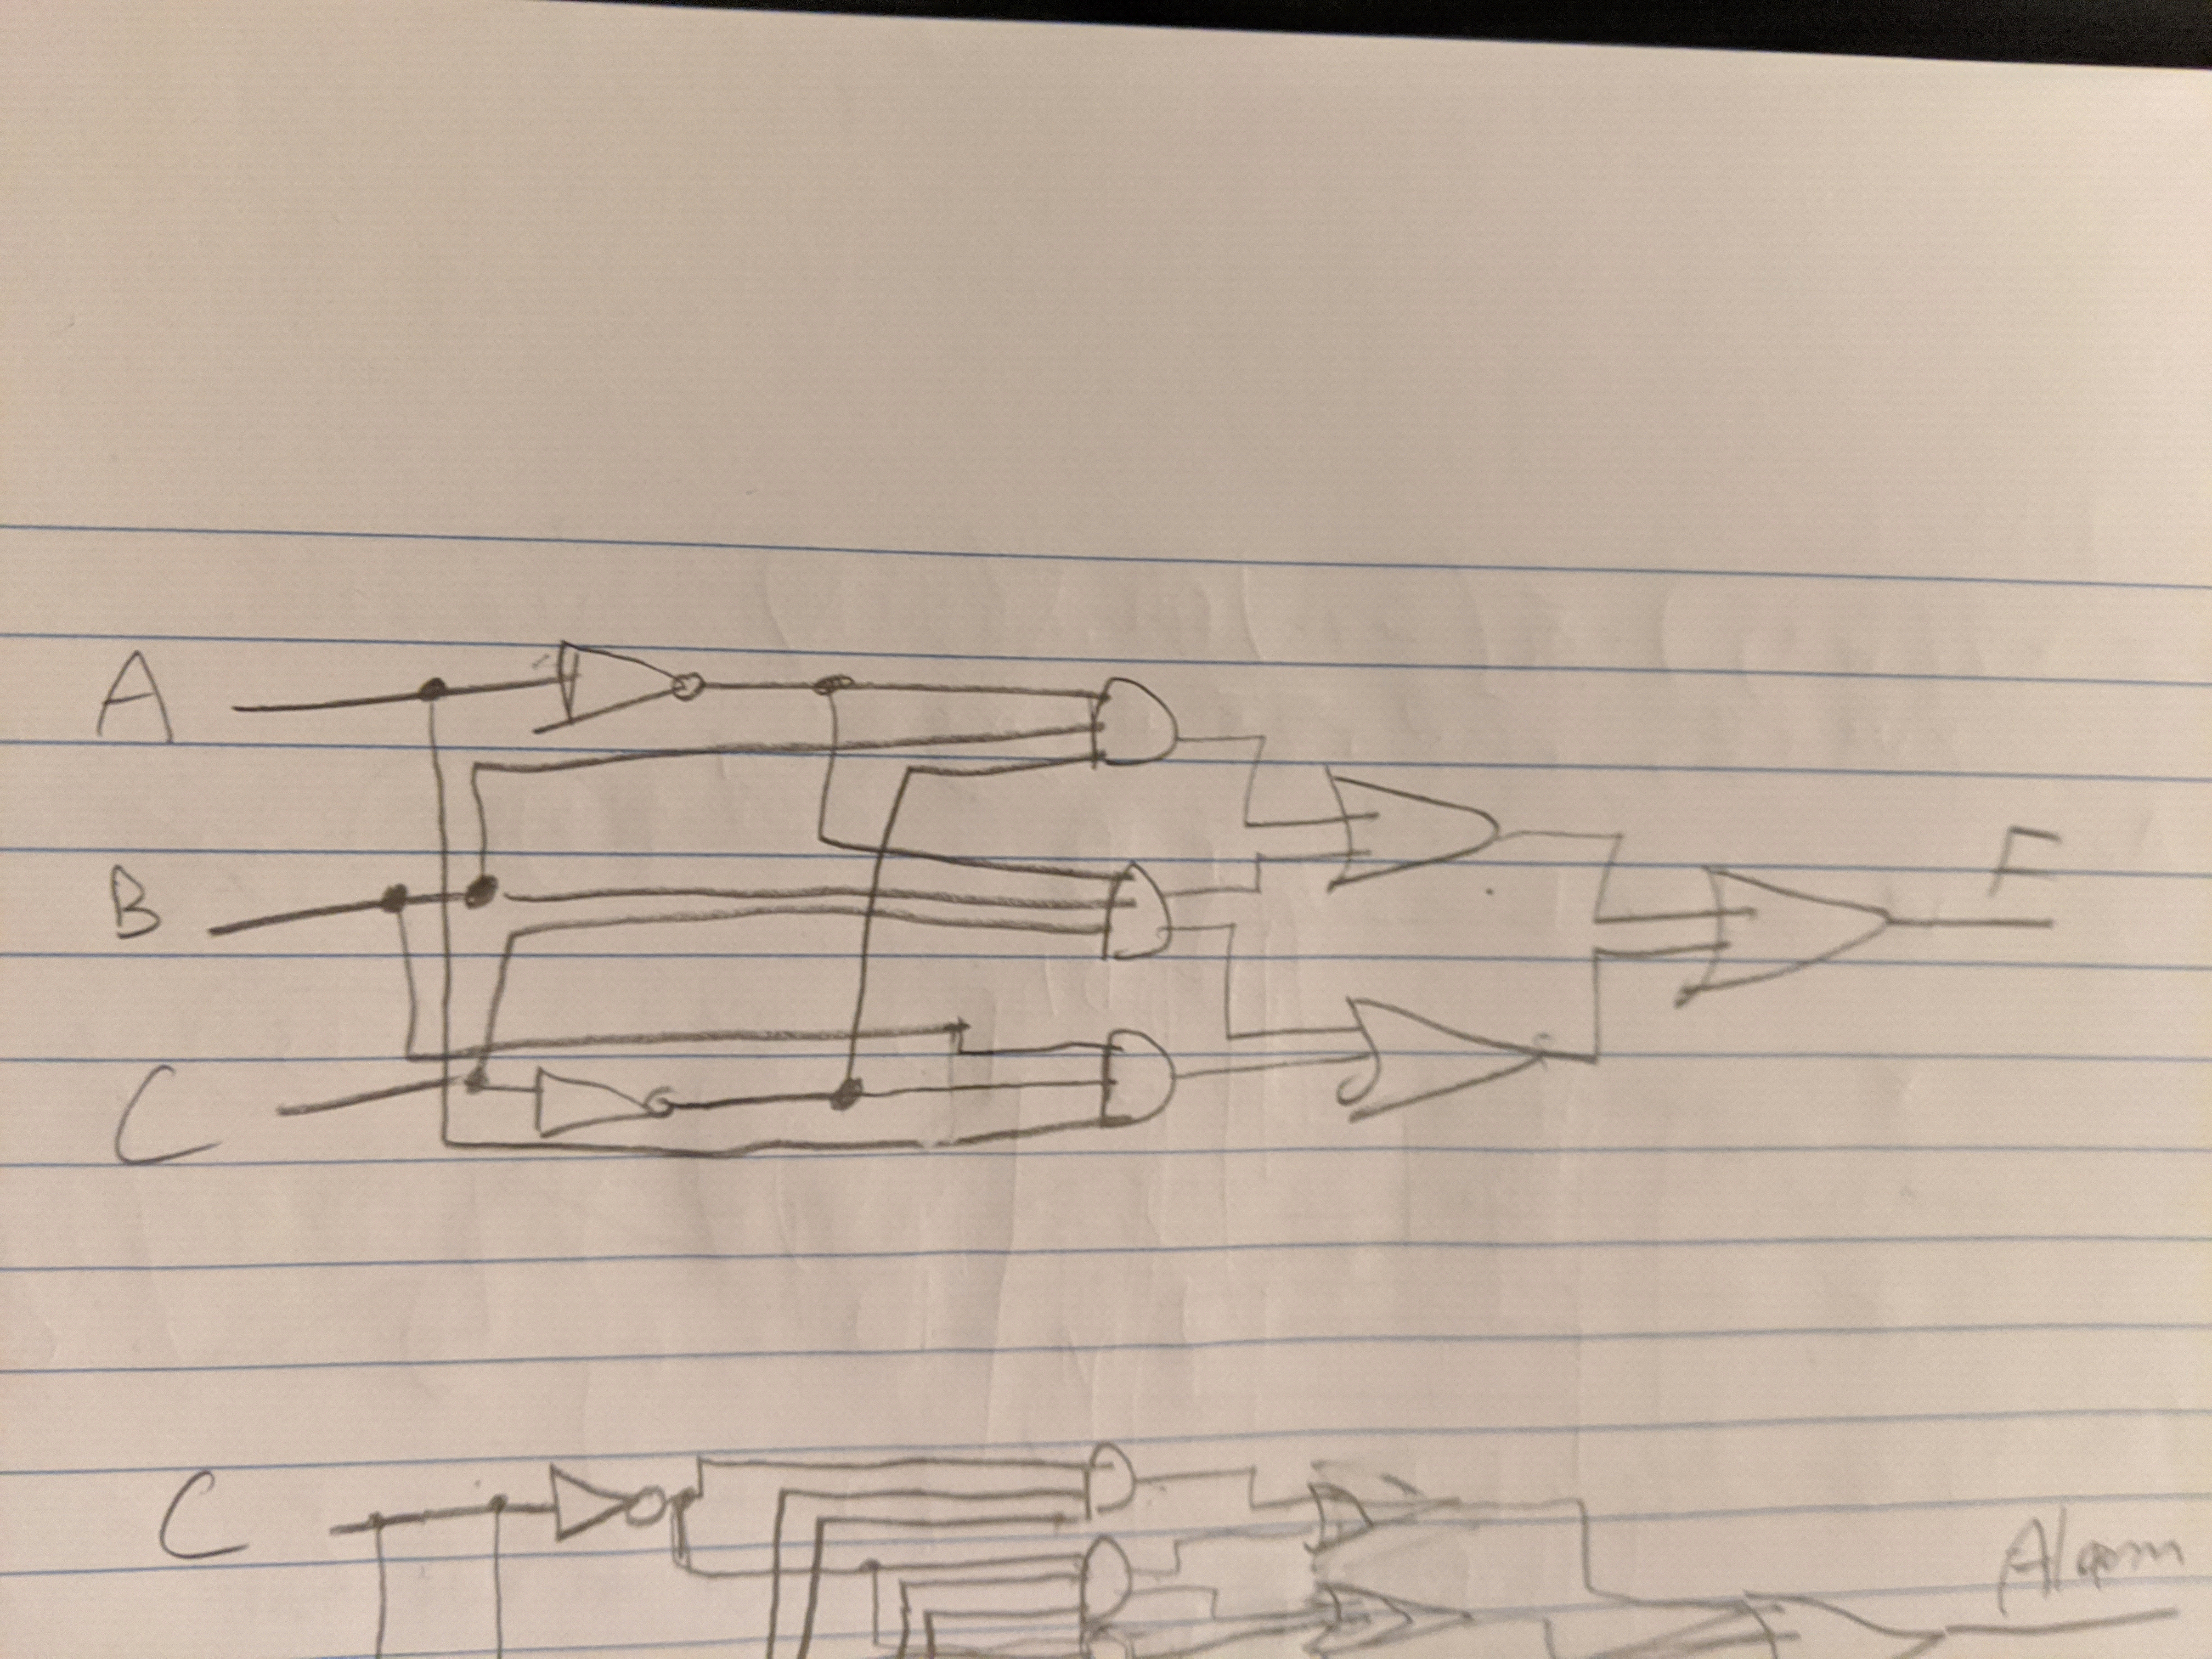 A
F
B
C
C
Alarm